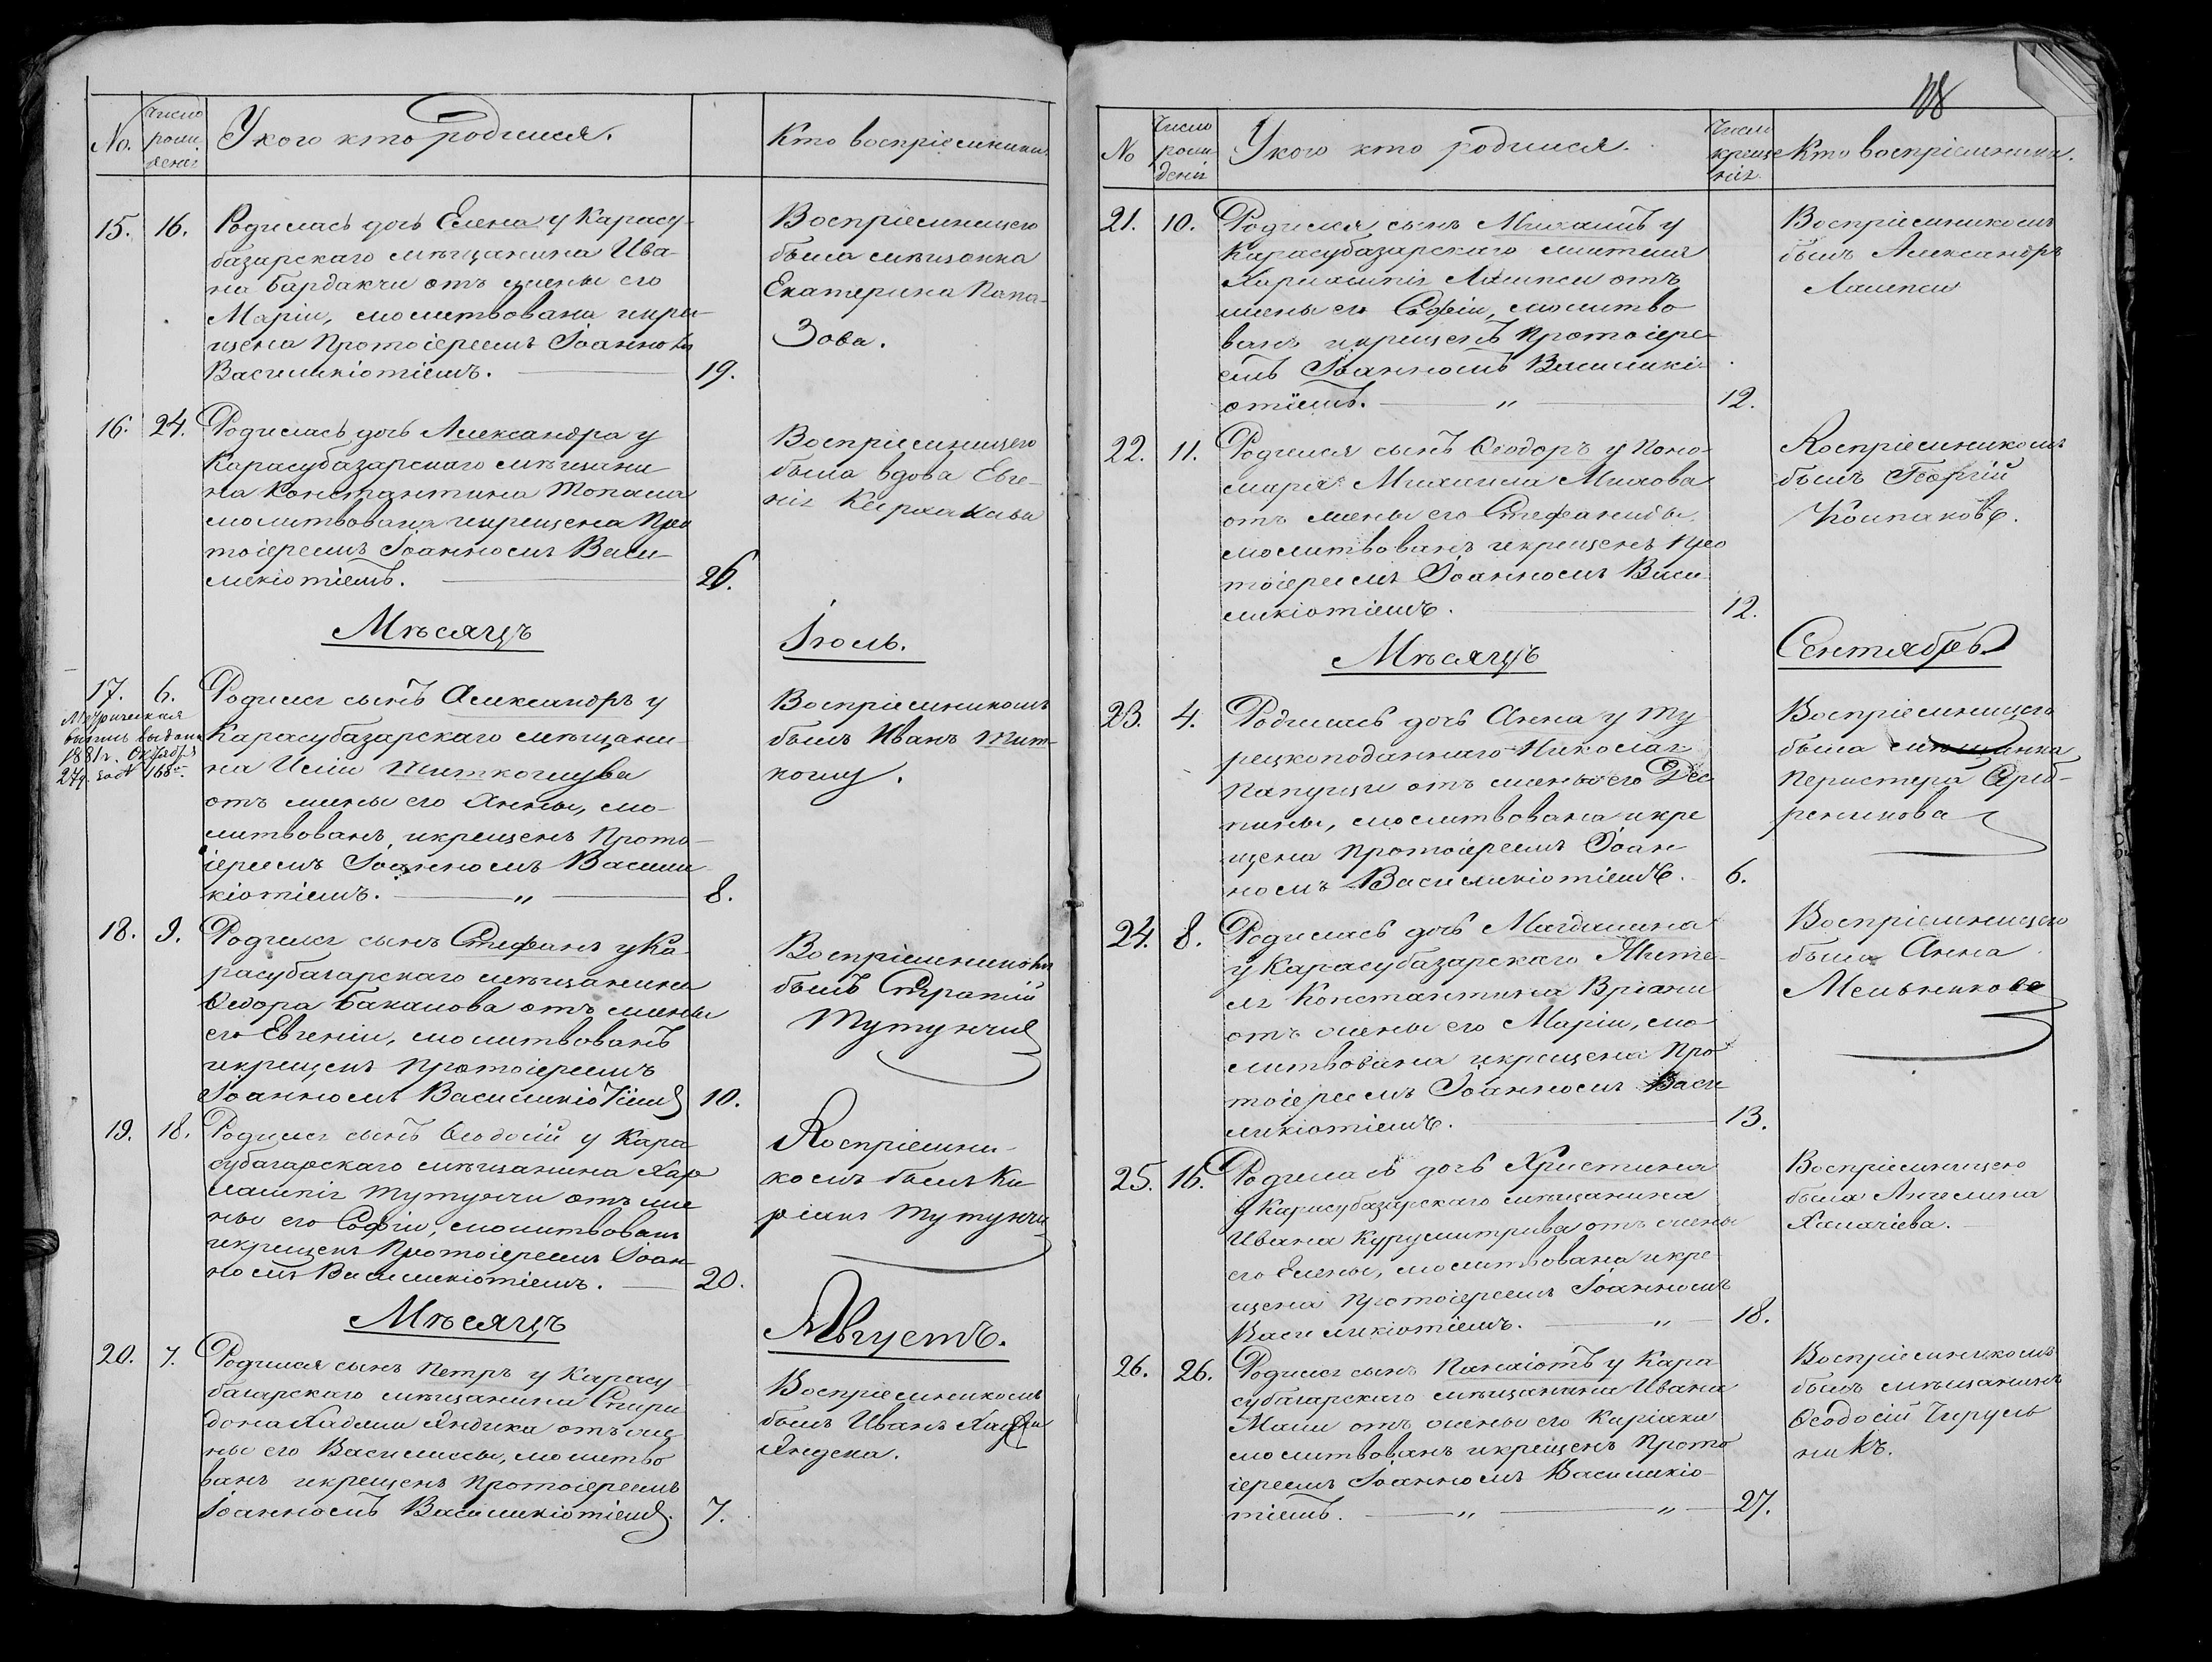 No.
Число
рожденія
У кого кто родился.
Кто воспріемники.
15.
16.
Родилась дочь Елена у Карасу-
базарскаго мѣщанина Ива-
на Бардакчи отъ жены его
Маріи, молитвована и кре-
щена Протоіереемъ Іоанномъ
Василикіотіемъ.
19.
Воспріемницею
была мѣщанка
Екатерина Папа-
Зова.
16.
24.
Родилась дочь Александра у
Карасубазарскаго мѣщани
на Константина Топала
молитвована и крещена Про
тоіереемъ Іоанномъ Васи-
ликіотіемъ.
26.
Воспріемницею
была вдова Евге-
нія
Мѣсяцъ
Іюль.
17.
6.
Метрическая
выпись выдана
1881 г. Октября
27 д. за № 168.
Родился сынъ Александръ у
Карасубазарскаго мѣщани-
на Иліи
отъ жены его Анны, мо-
литвованъ, и крещенъ Прото-
іереемъ Іоанномъ Васили
кіотіемъ. — „ —
8.
Воспріемникомъ
былъ Иванъ Тит-
кошу.
18.
9.
Родился сынъ Стефанъ у Ка-
расубазарскаго мѣщанина
Ѳеодора Бакалова отъ жены
его Евгеніи, молитвованъ
и крещенъ Протоіереемъ
Іоанномъ Василикіотіемъ
10.
Воспріемникомъ
былъ Стратій
Тутунчи
19.
18.
Родился сынъ Ѳеодосій у Кара
субазарскаго мѣщанина Хар
лампія Тутунчи отъ же
ны его Софіи, молитвованъ
и крещенъ Протоіереемъ Іоан
номъ Василикіотіемъ.
20.
Воспріемни-
комъ былъ Ки
ріакъ Тутунчи
Мѣсяцъ
Августъ.
20.
7.
Родился сынъ Петръ у Карасу
базарскаго мѣщанина Спири
дона Хаджи Яндика отъ же
ны его Василисы, молитво
ванъ и крещенъ Протоіереемъ
Іоанномъ Василикіотіемъ.
7.
Воспріемникомъ
былъ Иванъ Хаджи
Яндека.
118
No
Число
рожденія
У кого кто родился.
Число
крещенія
Кто воспріемники.
21.
10.
Родился сынъ Михаилъ у
Карасубазарскаго жителя
Харлампія Лампси отъ
жены его Софіи, молитво
ванъ и крещенъ Протоіере
емъ Іоанномъ Василикі-
отіемъ. — „ —
12.
Воспріемникомъ
былъ Александръ
Лампси
22.
11.
Родился сынъ Ѳеодоръ у Поно-
маря Михаила Михова
отъ жены его Стефаниды,
молитвованъ и крещенъ Про
тоіереемъ Іоанномъ Васи-
ликіотіемъ.
12.
Воспріемникомъ
былъ Георгій
Колпаковъ.
Мѣсяцъ
Сентябрь
23.
4.
Родилась дочь Анна у Ту
рецкоподаннаго Николая
Папуцци отъ жены его Дес
пины, молитвована и кре
щена Протоіереемъ Іоан
номъ Василикіотіемъ.
6.
Воспріемницею
была мѣщанка
Перистера
24.
8.
Родилась дочь Магдалина
у Карасубазарскаго Жите-
ля Константина Вріони
отъ жены его Маріи, мо
литвована и крещена Про
тоіереемъ Іоанномъ Васи
ликіотіемъ.
13.
Воспріемницею
была Анна
Мельникова
25.
16.
Родилась дочь Христина
у Карасубазарскаго мѣщанина
Ивана Курумитрива отъ жены
его Елены, молитвована и кре-
щена Протоіереемъ Іоанномъ
Василикіотіемъ. — „ —
18.
Воспріемницею
была Ангелина
Халачіева.
26.
26.
Родился сынъ Панаіотъ у Кара
субазарскаго мѣщанина Ивана
Мали отъ жены его Киріаки
молитвованъ и крещенъ Прото
іереемъ Іоанномъ Василикіо-
тіемъ. — „ — „ —
27.
Воспріемникомъ
былъ мѣщанинъ
Ѳеодосій Чируль
никъ.